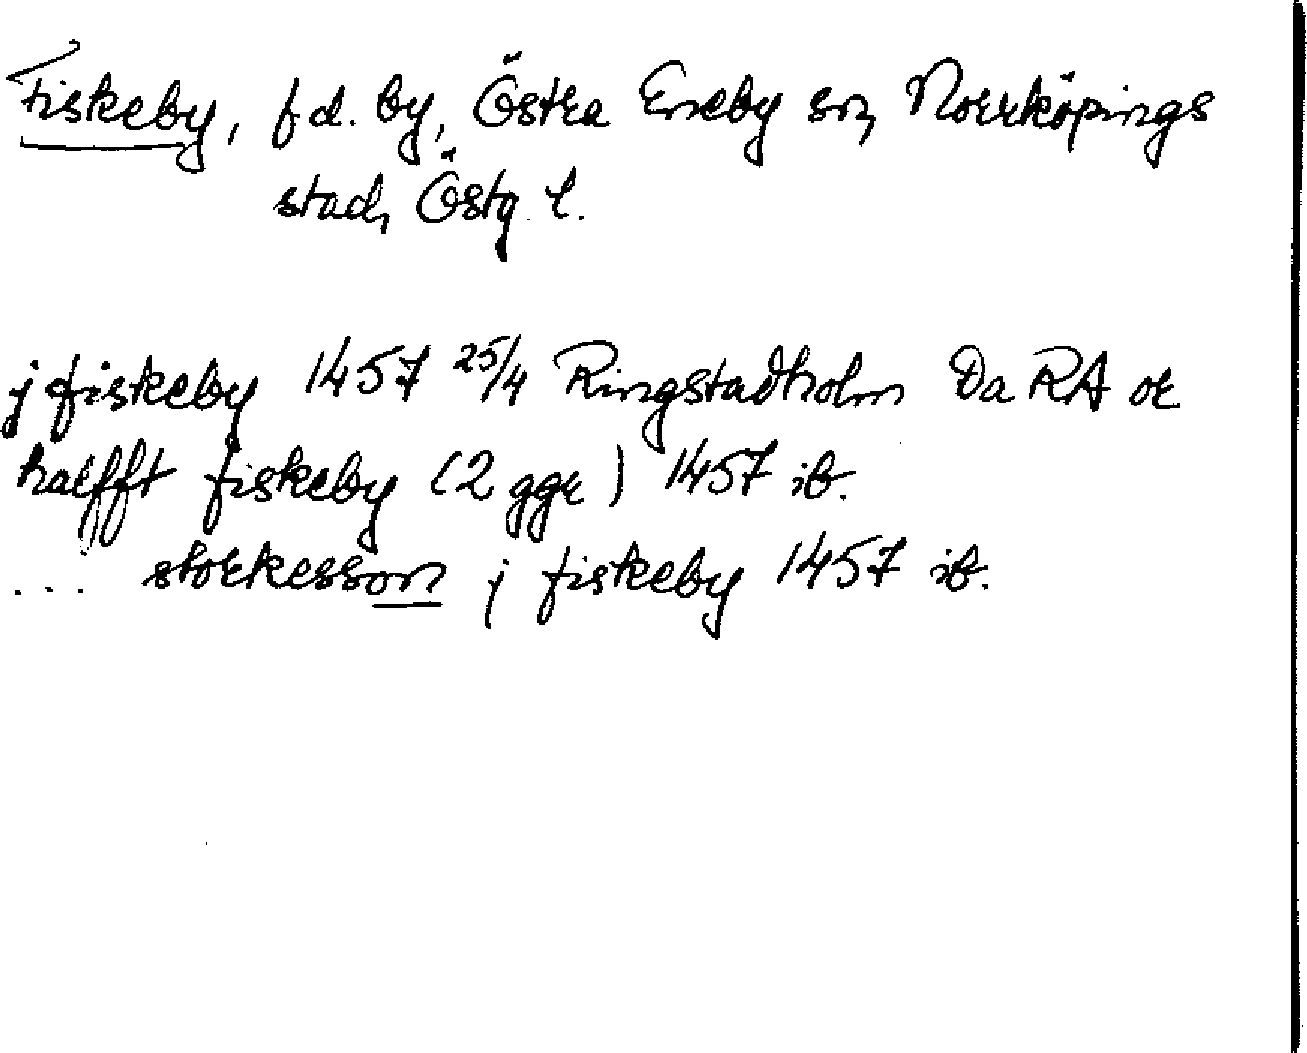 Fiskeby, f d. by, Östra Eneby sn, Norrköpings
stad, Östg. l.
j fiskeby 1457 25/4 Ringstadholm Da RA or
halfft fiskeby (2 ggr) 1457 ib.
... storkesson j fiskeby 1457 ib.